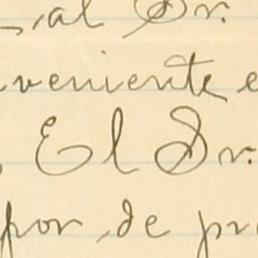 al Dr.
veniente e
El Dr.
por de pr